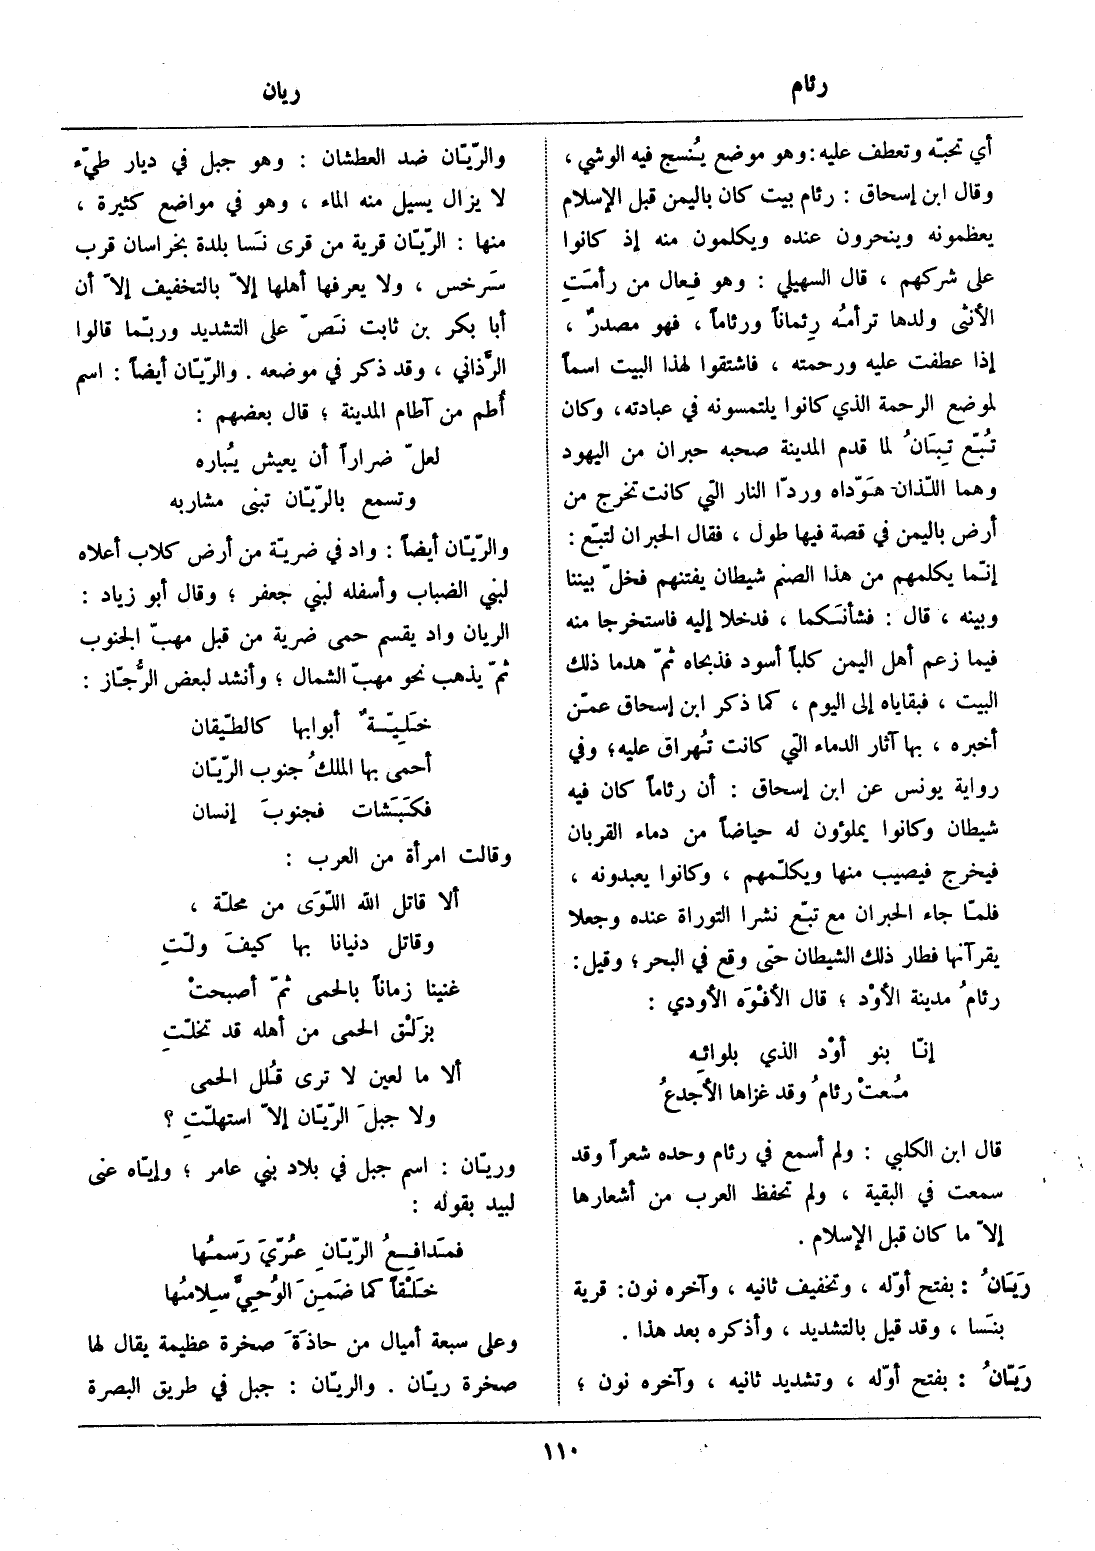 رئام
ريان
أي تحبّه وتعطف عليه: وهو موضع يُنسج فيه الوشي ،
وقال ابن إسحاق : رئام بيت كان باليمن قبل الإسلام
يعظمونه وينحرون عنده ويكلمون منه إذ كانوا
على شركهم ، قال السهيلي : وهو فِعال من رأمَتِ
الأنثى ولدها ترأمُه رِئماناً ورئاماً ، فهو مصدرٌ ،
إذا عطفت عليه ورحمته ، فاشتقوا لهذا البيت اسماً
لموضع الرحمة الذي كانوا يلتمسونه في عبادته، وكان
تُبّع تِبَانُ لما قدم المدينة صحبه حبران من اليهود
وهما اللّذان هَوّداه وردّا النار التي كانت تخرج من
أرض باليمن في قصة فيها طول ، فقال الحبران لتبّع :
إنّما يكلمهم من هذا الصنم شيطان يفتنهم فخلّ بيننا
وبينه ، قال : فشأنَكما ، فدخلا إليه فاستخرجا منه
فيما زعم أهل اليمن كلباً أسود فذبحاه ثمّ هدما ذلك
البيت ، فبقاياه إلى اليوم ، كما ذكر ابن إسحاق عمّن
أخبره ، بها آثار الدماء التي كانت تُهراق عليه؛ وفي
رواية يونس عن ابن إسحاق : أن رئاماً كان فيه
شيطان وكانوا يملؤون له حياضاً من دماء القربان
فيخرج فيصيب منها ويكلّمهم ، وكانوا يعبدونه ،
فلمّا جاء الحبران مع تبّع نشرا التوراة عنده وجعلا
يقرآنها فطار ذلك الشيطان حتى وقع في البحر؛ وقيل:
رئامُ مدينة الأوْد ؛ قال الأفْوَه الأودي :
إنّا بنو أوْد الذي بلوائِه
مُنعتْ رئامُ وقد غزاها الأجدعُ
قال ابن الكلبي : ولم أسمع في رئام وحده شعراً وقد
سمعت في البقية ، ولم تحفظ العرب من أشعارها
إلاّ ما كان قبل الإسلام .
رَيَانُ : بفتح أوّله ، وتخفيف ثانيه ، وآخره نون: قرية
بنَسا ، وقد قيل بالتشديد ، وأذكره بعد هذا .
رَيّانُ : بفتح أوّله ، وتشديد ثانيه ، وآخره نون ؛
والرّيّان ضد العطشان : وهو جبل في ديار طيّء
لا يزال يسيل منه الماء ، وهو في مواضع كثيرة ،
منها : الرّيّان قرية من قرى نسَا بلدة بخراسان قرب
سَرخس ، ولا يعرفها أهلها إلاّ بالتخفيف إلاّ أن
أبا بكر بن ثابت نَصّ على التشديد وربّما قالوا
الرَّذاني ، وقد ذكر في موضعه . والرّيّان أيضاً : اسم
أُطم من آطام المدينة ؛ قال بعضهم :
لعلّ ضراراً أن يعيش يُباره
وتسمع بالرّيّان تبنى مشاربه
والرّيّان أيضاً : واد في ضريّة من أرض كلاب أعلاه
لبني الضباب وأسفله لبني جعفر ؛ وقال أبو زياد :
الريان واد يقسم حمى ضرية من قبل مهبّ الجنوب
ثمّ يذهب نحو مهبّ الشمال ؛ وأنشد لبعض الرُّجّاز :
خَلِيّةٌ أبوابها كالطّيقان
أحمى بها الملكُ جنوب الرّيّان
فكَبَشات فجنوبَ إنسان
وقالت امرأة من العرب :
ألا قاتل الله اللّوَى من محلّة ،
وقاتل دنيانا بها كيفَ ولّتِ
غنينا زماناً بالحمى ثمّ أصبحتْ
بَزلَق الحمى من أهله قد تخلّتِ
ألا ما لعين لا ترى قُلل الحمى
ولا جبلَ الرّيّان إلاّ استهلّتِ ؟
وريّان : اسم جبل في بلاد بني عامر ؛ وإيّاه عنى
لبيد بقوله :
فمَدافِعُ الرّيّانِ عُرّيَ رَسمُها
خَلَقاً كما ضَمِنَ الوُحِيَّ سِلامُها
وعلى سبعة أميال من حاذَةَ صخرة عظيمة يقال لها
صخرة ريّان . والريّان : جبل في طريق البصرة
١١٠